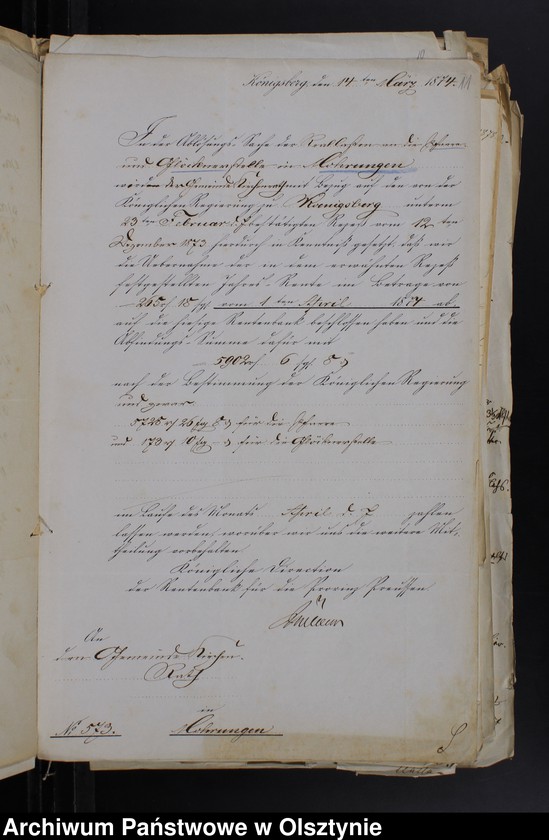 10
Königsberg den 14 ten März 1874.
In der Ablösungs-Sache der Reallasten an die Pfarre
und Glöcknerstelle in Mohrungen
werden der Gemeinde Kirchenrath mit Bezug auf den von der
Königlichen Regierung zu Koenigsberg unterm
23 ten Februar d. J. bestätigten Rezeß vom 12 ten
Dezember 1873 hierdurch in Kenntniß gesetzt, daß wir
die Uebernahme der in dem erwähnten Rezeß
festgestellten Jahres-Rente im Betrage von
265 rt 18 sgr vom 1 ten April 1874 ab
auf die hiesige Rentenbank beschlossen haben und die
Abfindungs-Summe dafür mit
5902 rt 6 sgr 8 d
nach der Bestimmung der Königlichen Regierung
und zwar
5725 rt 26 sgr 8 d für die Pfarre
und 176 rt 10 sgr - d für die Glöcknerstelle
im Laufe des Monats April d. J. zahlen
lassen werden, worüber wir uns die weitere Mit-
theilung vorbehalten
Königliche Direction
der Rentenbank für die Provinz Preussen
An
den Gemeinde Kirchen-
Rath
in
No 573. Mohrungen
Archiwum Państwowe w Olsztynie